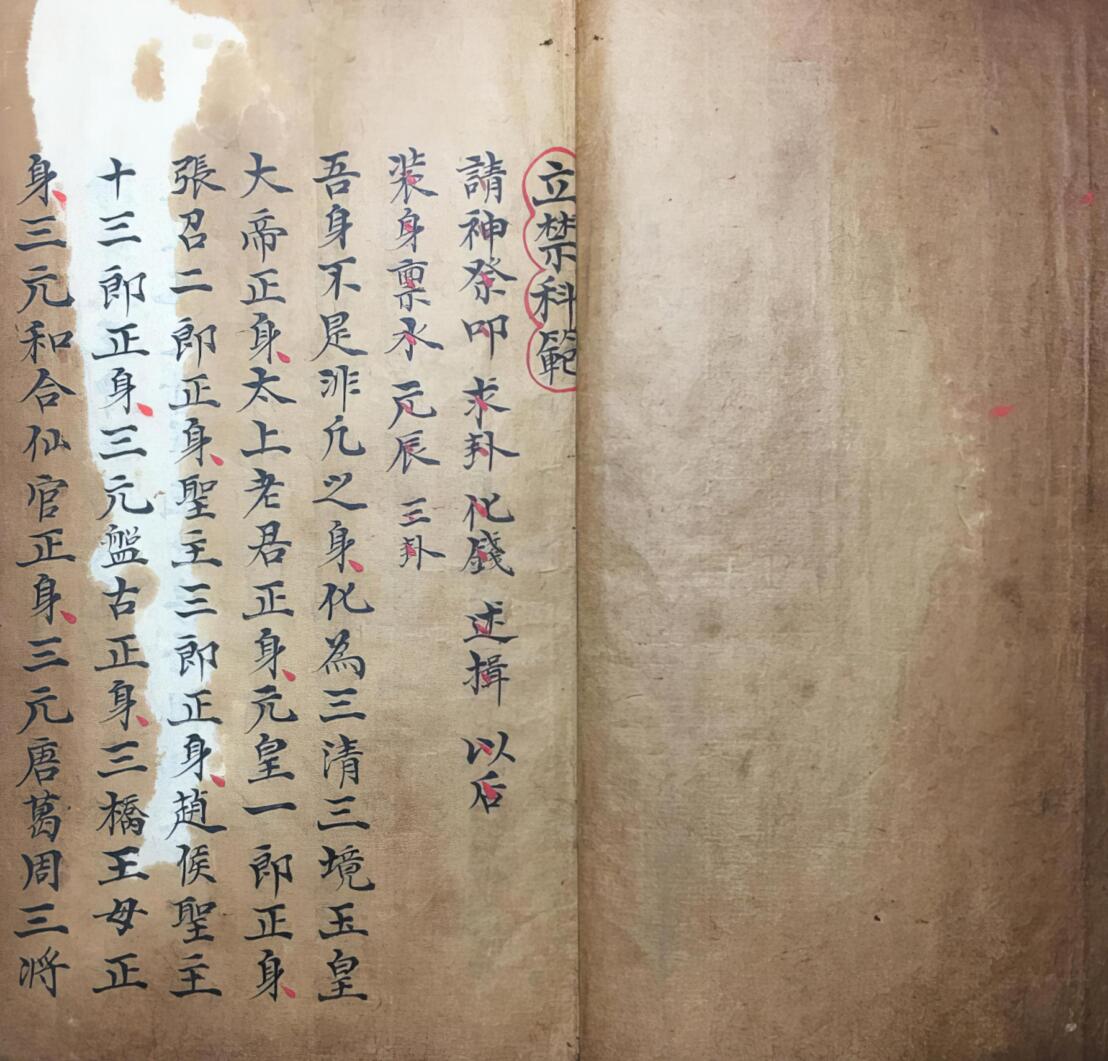 立禁科範
請神祭叩 求卦 化錢 述揖 以后
装身禀水 元辰 三卦
吾身不是非凡之身化為三清三境玉皇
大帝正身太上老君正身元皇一郎正身
張召二郎正身聖主三郎正身趙侯聖主
十三郎正身三元盤古正身三橋王母正
身三元和合仙官正身三元唐葛周三将